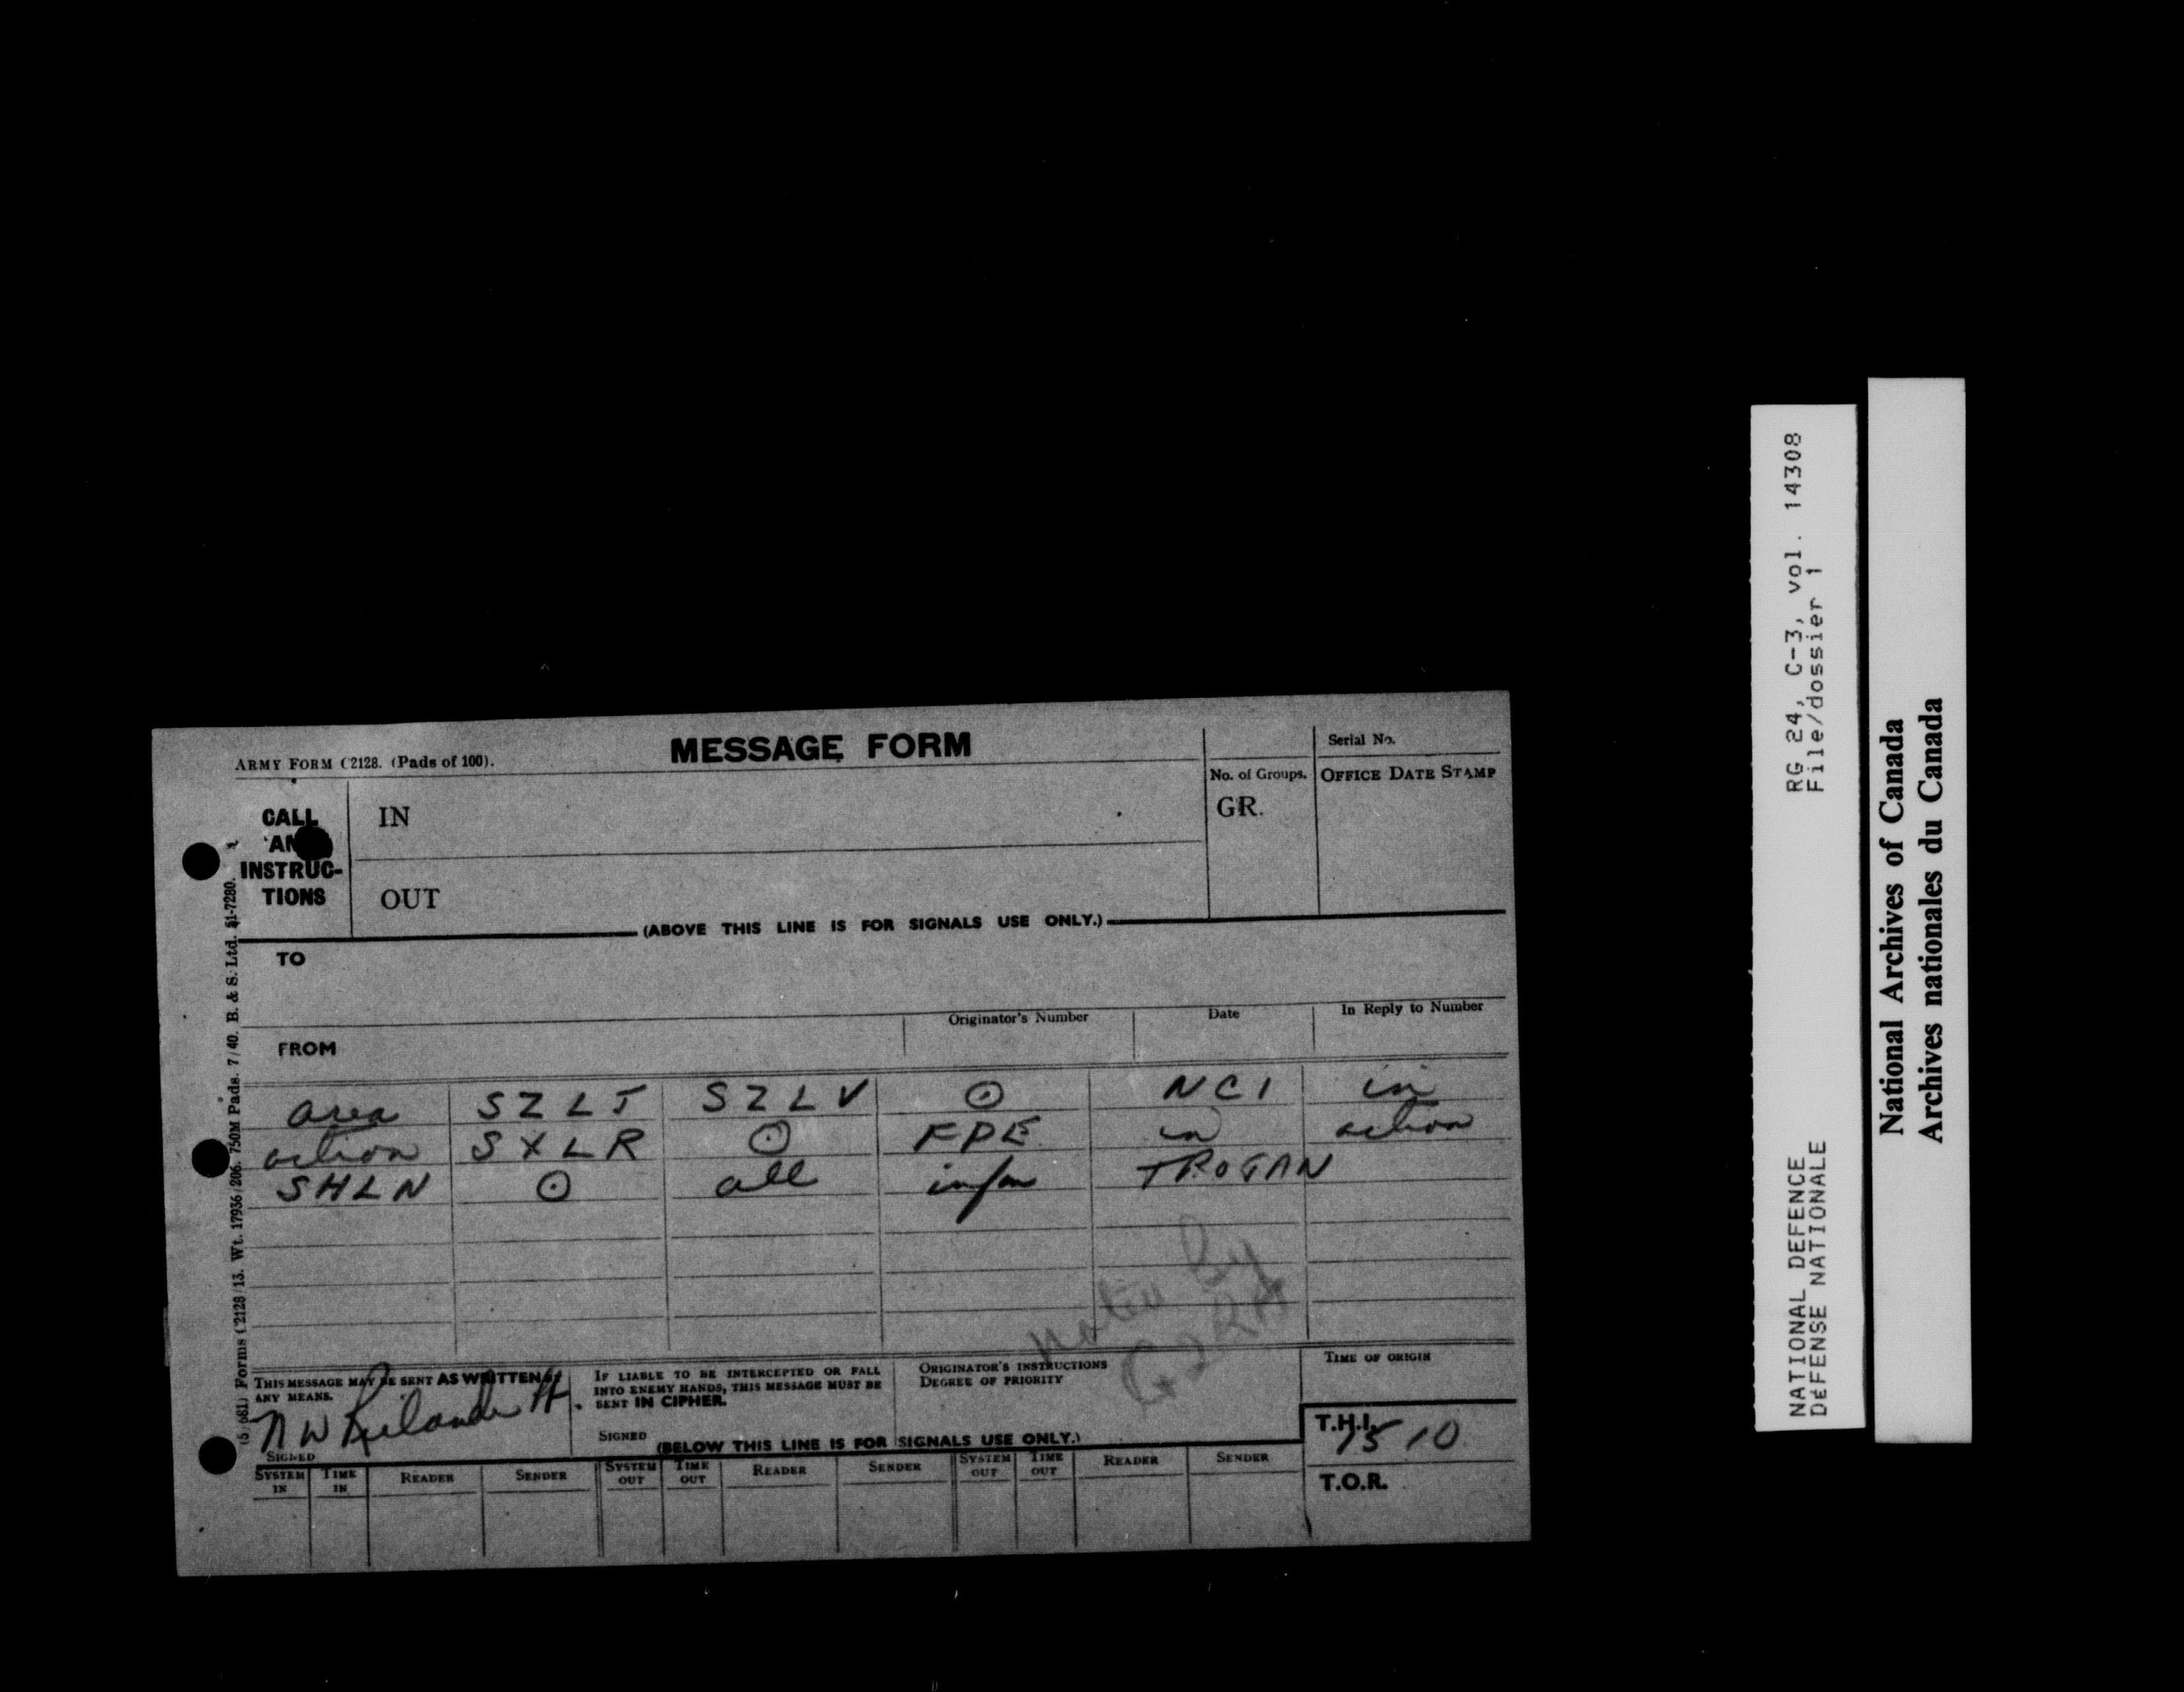 MESSAGE FORM
ARMY FORM C2128. (Pads of 100).
Serial No.
No. of Groups.
OFFICE DATE STAMP
CALL
INSTRUC-
TIONS
IN
GR.
OUT
(ABOVE THIS LINE IS FOR SIGNALS USE ONLY.)
TO
Originator's Number
Date
In Reply to Number
FROM
area SZLT SZLV ⊙ NCI in
action SXLR ⊙ FPE in action
SHLN ⊙ all infm TROJAN
noted by
THIS MESSAGE MAY BE SENT AS WRITTEN BY
ANY MEANS.
SIGNED
IF LIABLE TO BE INTERCEPTED OR FALL
INTO ENEMY HANDS, THIS MESSAGE MUST BE
SENT IN CIPHER.
SIGNED
ORIGINATOR'S INSTRUCTIONS
DEGREE OF PRIORITY
TIME OF ORIGIN
T.H.I.
1510
T.O.R.
(BELOW THIS LINE IS FOR SIGNALS USE ONLY.)
SYSTEM IN
TIME IN
READER
SENDER
SYSTEM OUT
TIME OUT
READER
SENDER
SYSTEM OUT
TIME OUT
READER
SENDER
Forms C2128/13. Wt. 17936/206. 750M Pads. 7/40. B. & S. Ltd. 51-7280.
NATIONAL DEFENCE RG 24, C-3, vol. 14308
DÉFENSE NATIONALE File/dossier 1
National Archives of Canada
Archives nationales du Canada